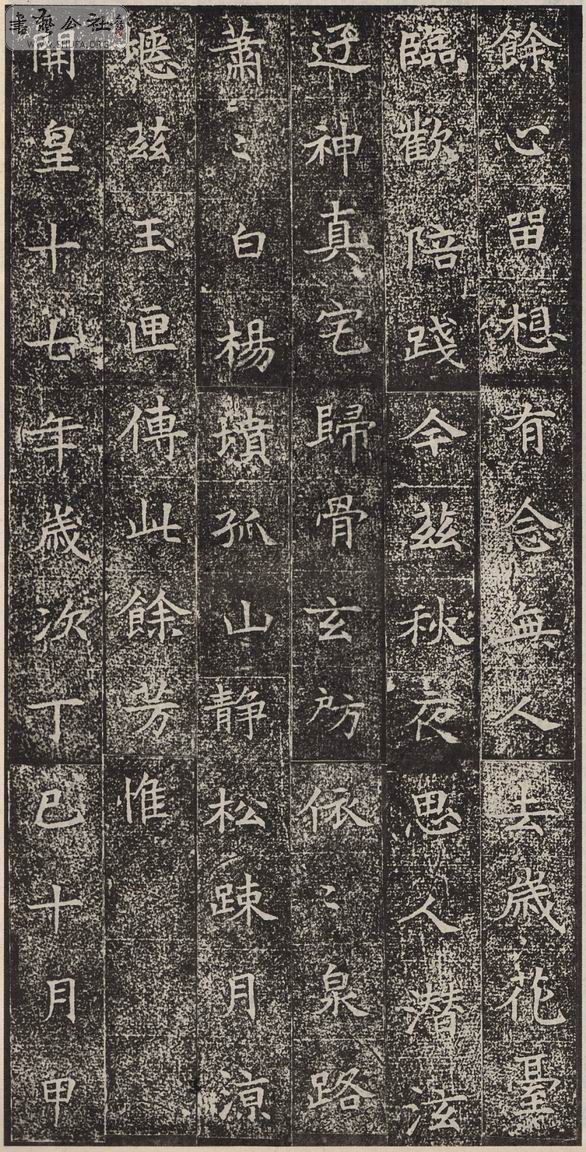 餘心留想有念無人去歳花臺
臨歡陪踐今茲秋夜思人潛泫
迂神真宅歸骨玄房依〻泉路
蕭〻白楊墳孤山静松踈月涼
瘞茲玉匣傳此餘芳惟
開皇十七年歳次丁巳十月甲
書艺公社
WWW.SHUFA.ORG